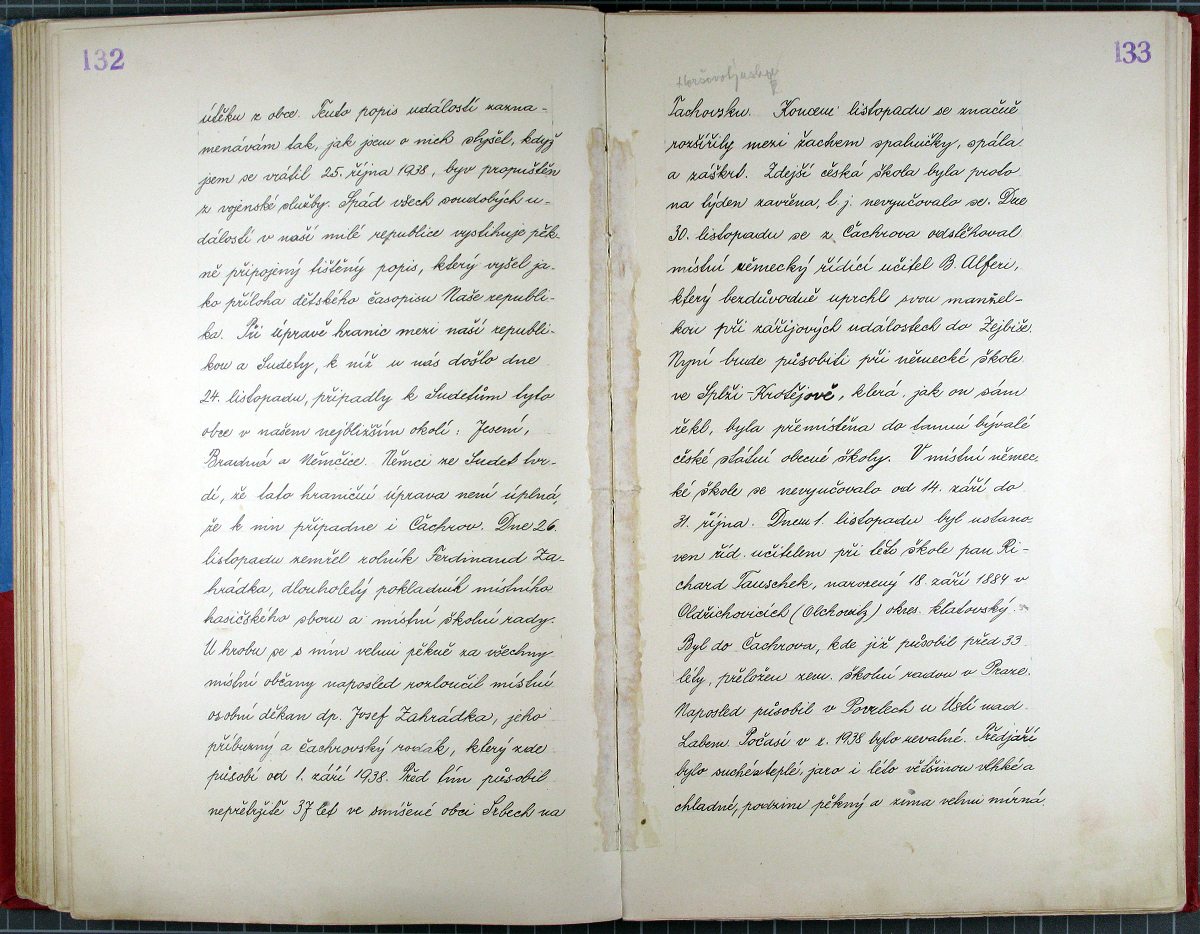 132
útěku z obce. Tento popis událostí zazna-
menávám tak, jak jsem o nich slyšel, když
jsem se vrátil 25. října 1938, byv propuštěn
z vojenské služby. Spád všech soudobých u-
dálostí v naší milé republice vystihuje pěk-
ně připojený tištěný popis, který vyšel ja-
ko příloha dětského časopisu Naše republi-
ka. Při úpravě hranic mezi naší republi-
kou a Sudety, k níž u nás došlo dne
24. listopadu, připadly k Sudetům tyto
obce v našem nejbližším okolí: Jesení,
Bradná a Němčice. Němci ze Sudet tvr-
dí, že tato hraniční úprava není úplná,
že k nim připadne i Čachrov. Dne 26.
listopadu zemřel rolník Ferdinand Za-
hrádka, dlouholetý pokladník místního
hasičského sboru a místní školní rady.
U hrobu se s ním velmi pěkně za všechny
místní občany naposled rozloučil místní
osobní děkan dp. Josef Zahrádka, jeho
příbuzný a čachrovský rodák, který zde
působí od 1. září 1938. Před tím působil
nepřetržitě 37 let ve smíšené obci Srbech na
133
Horšovotýnsku
Tachovsku. Koncem listopadu se značně
rozšířily mezi žactvem spalničky, spála
a záškrt. Zdejší česká škola byla proto
na týden zavřena, t. j. nevyučovalo se. Dne
30. listopadu se z Čachrova odstěhoval
místní německý řídící učitel B. Alferi,
který bezdůvodně uprchl svou manžel-
kou při zářijových událostech do Zejbiše.
Nyní bude působiti při německé škole
ve Splži-Krotějově, která, jak on sám
řekl, byla přemístěna do tamní bývalé
české státní obecné školy. V místní němec-
ké škole se nevyučovalo od 14. září do
31. října. Dnem 1. listopadu byl ustano-
ven říd. učitelem při této škole pan Ri-
chard Tauschek, narozený 18. září 1884 v
Oldřichovicích (Olchowitz) okres klatovský.
Byl do Čachrova, kde již působil před 33
léty, přeložen zem. školní radou v Praze.
Naposled působil v Povrlech u Ústí nad
Labem. Počasí v r. 1938 bylo nevalné. Předjaří
bylo suché a teplé, jaro i léto většinou vlhké a
chladné, podzim pěkný a zima velmi mírná.